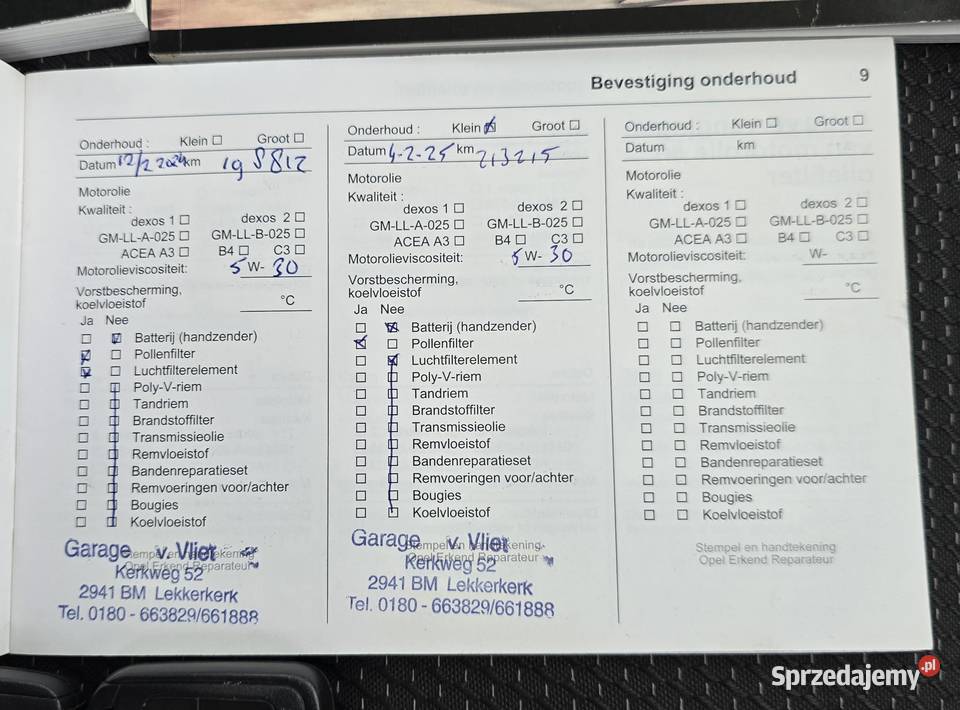 Bevestiging onderhoud 9
Onderhoud : Klein Groot
Datum 12/2 2024 km 198812
Motorolie
Kwaliteit :
dexos 1 dexos 2
GM-LL-A-025 GM-LL-B-025
ACEA A3 B4 C3
Motorolieviscositeit: 5 W- 30
Vorstbescherming,
koelvloeistof °C
Ja Nee
Batterij (handzender)
Pollenfilter
Luchtfilterelement
Poly-V-riem
Tandriem
Brandstoffilter
Transmissieolie
Remvloeistof
Bandenreparatieset
Remvoeringen voor/achter
Bougies
Koelvloeistof
Stempel en handtekening
Opel Erkend Reparateur
Garage v. Vliet
Kerkweg 52
2941 BM Lekkerkerk
Tel. 0180 - 663829/661888
Onderhoud : Klein Groot
Datum 4-2-25 km 213215
Motorolie
Kwaliteit :
dexos 1 dexos 2
GM-LL-A-025 GM-LL-B-025
ACEA A3 B4 C3
Motorolieviscositeit: 5 W- 30
Vorstbescherming,
koelvloeistof °C
Ja Nee
Batterij (handzender)
Pollenfilter
Luchtfilterelement
Poly-V-riem
Tandriem
Brandstoffilter
Transmissieolie
Remvloeistof
Bandenreparatieset
Remvoeringen voor/achter
Bougies
Koelvloeistof
Stempel en handtekening
Opel Erkend Reparateur
Garage v. Vliet
Kerkweg 52
2941 BM Lekkerkerk
Tel. 0180 - 663829/661888
Onderhoud : Klein Groot
Datum km
Motorolie
Kwaliteit :
dexos 1 dexos 2
GM-LL-A-025 GM-LL-B-025
ACEA A3 B4 C3
Motorolieviscositeit: W-
Vorstbescherming,
koelvloeistof °C
Ja Nee
Batterij (handzender)
Pollenfilter
Luchtfilterelement
Poly-V-riem
Tandriem
Brandstoffilter
Transmissieolie
Remvloeistof
Bandenreparatieset
Remvoeringen voor/achter
Bougies
Koelvloeistof
Stempel en handtekening
Opel Erkend Reparateur
Sprzedajemy .pl